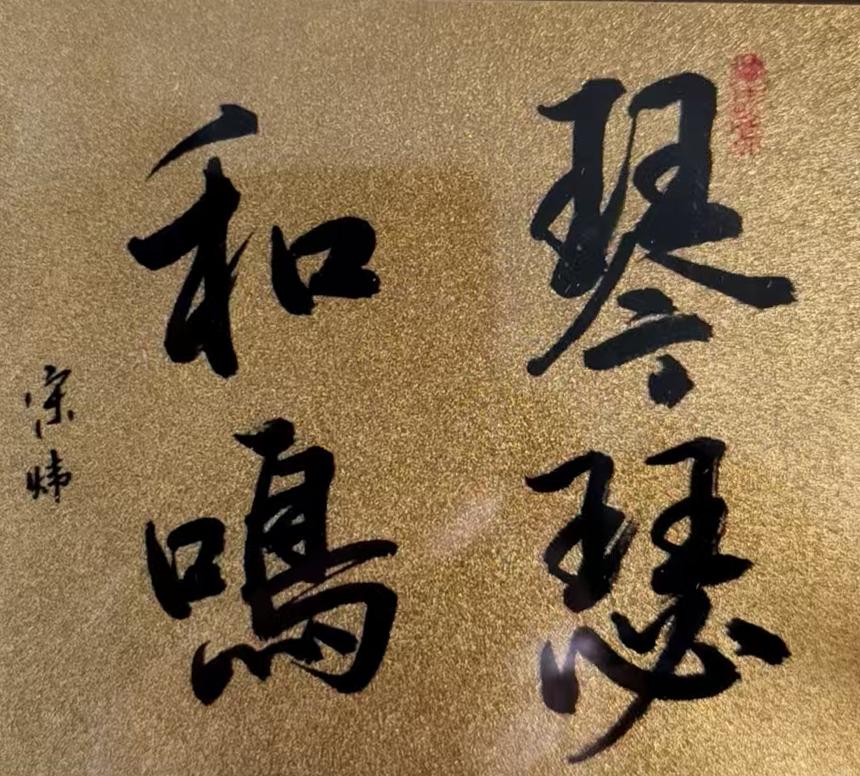 琴瑟
和鸣
宗炜